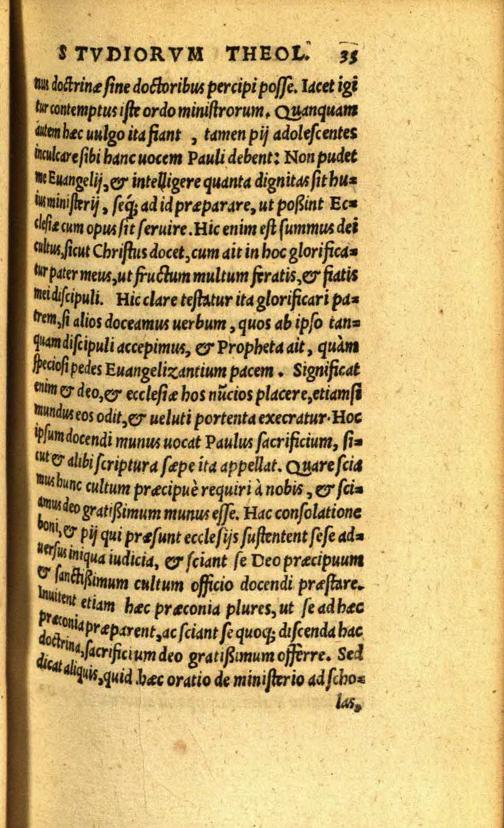 STVDIORVM THEOL. 35
nus doctrinæ sine doctoribus percipi posse. Iacet igi
tur contemptus iste ordo ministrorum. Quanquam
autem hæc uulgo ita fiant , tamen pij adolescentes
inculcare sibi hanc uocem Pauli debent: Non pudet
me Euangelij, & intelligere quanta dignitas sit hu=
ius ministerij, seq; ad id præparare, ut poßint Ec=
clesiæ cum opus sit seruire. Hic enim est summus dei
cultus, sicut Christus docet, cum ait in hoc glorifica=
tur pater meus, ut fructum multum feratis, & fiatis
mei discipuli. Hic clare testatur ita glorificari pa=
trem, si alios doceamus uerbum, quos ab ipso tan=
quam discipuli accepimus, & Propheta ait, quàm
speciosi pedes Euangelizantium pacem. Significat
enim & deo, & ecclesiæ hos nūcios placere, etiamsi
mundus eos odit, & ueluti portenta execratur. Hoc
ipsum docendi munus uocat Paulus sacrificium, si=
cut & alibi scriptura sæpe ita appellat. Quare scia
mus hunc cultum præcipuè requiri à nobis, & sci=
amus deo gratißimum munus esse. Hac consolatione
boni, & pij qui præsunt ecclesijs sustentent sese ad=
uersus iniqua iudicia, & sciant se Deo præcipuum
& sanctißimum cultum officio docendi præstare.
Inuitent etiam hæc præconia plures, ut se ad hæc
præconia præparent, ac sciant se quoq; discenda hac
doctrina, sacrificium deo gratißimum offerre. Sed
dicat aliquis, quid hæc oratio de ministerio ad scho=
las,